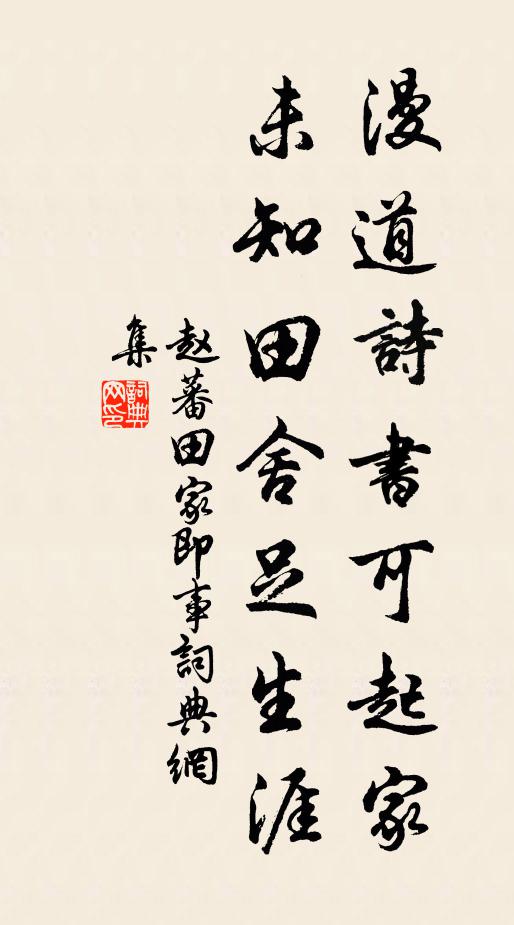 漫道詩書可起家
未知田舍足生涯
赵蕃田家即事詞典網
集
詞典网印